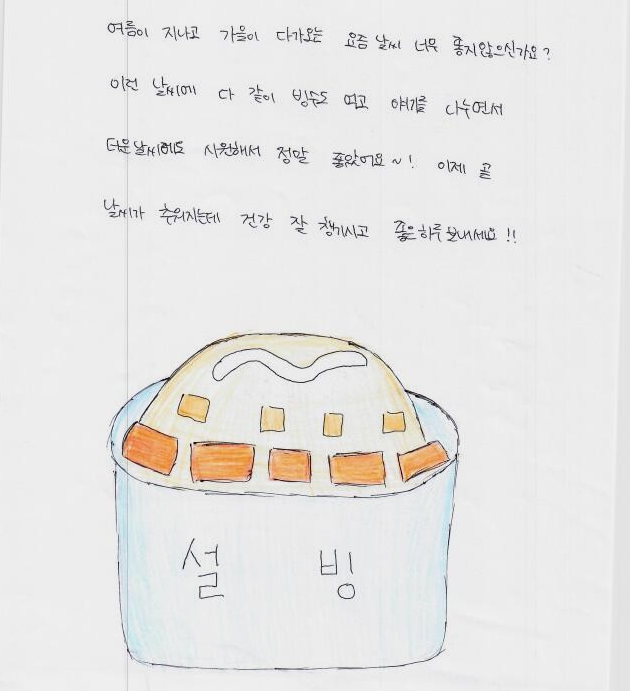 여름이 지나고 가을이 다가오는 요즘 날씨 너무 좋지않으신가요?
이런 날씨에 다 같이 빙수도 먹고 얘기를 나누면서
더운날씨에도 시원해서 정말 좋았어요~! 이제 곧
날씨가 추워지는데 건강 잘 챙기시고 좋은하루보내세요!!
설 빙